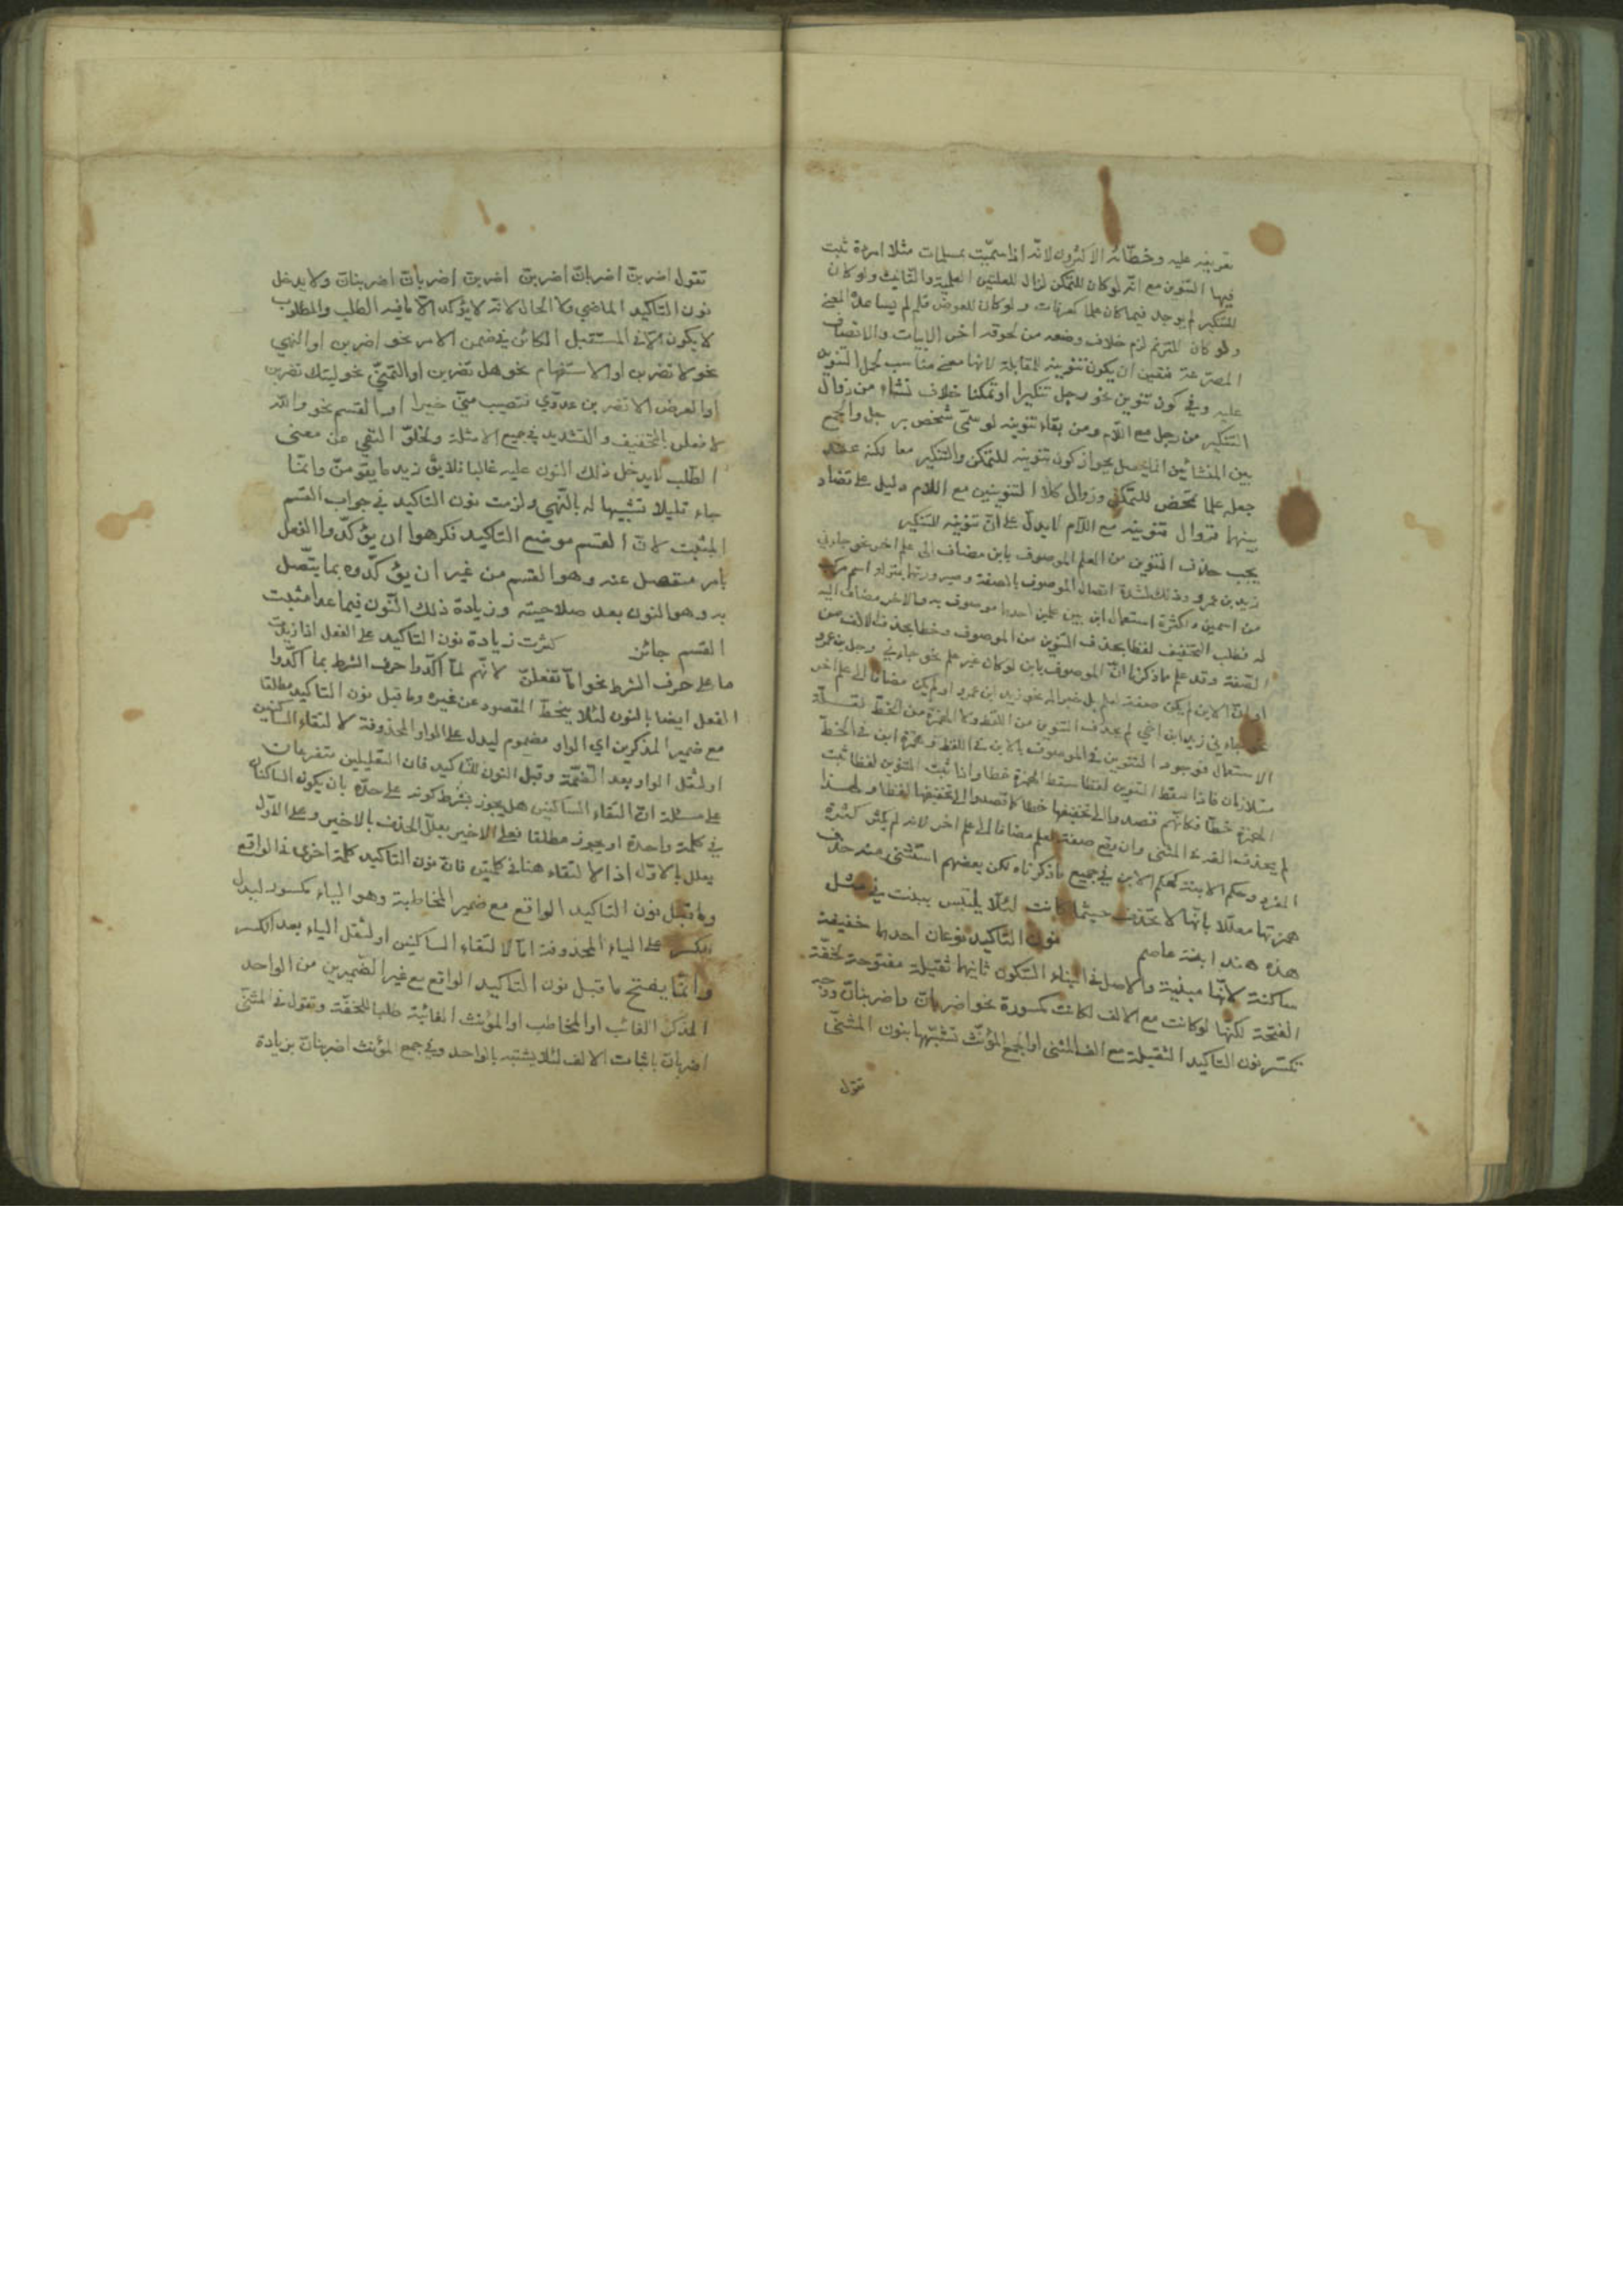 تعريفه عليه وخطّائه الاكثرون لانّه اذا سمّيت بمسلمات مثلا امرءة ثبت
فيها التنوين مع انّه لو كان للتمكّن لزال للعلتين العلمية والتانيث ولو كان
للتنكير لم يوجد فيما كان علما كعرفات ولو كان للعوض فلم لم يساعده المعنى
ولو كان للترنم لزم خلاف وضعه من لحوقه اخر الابيات والانصاف
المصرعة فتعين ان يكون تنوينه للمقابلة لانها معنى مناسب لحمل التنوين
عليه وفي كون تنوين نحو رجل تنكيرا او تمكنا خلاف نشاء من زوال
التنكير من رجل مع اللام ومن بقاء تنوينه لو سمّى شخص برجل والجمع
بين المنشائين انما يحصل بجواز كون تنوينه للتمكن والتنكير معا لكنه عند
جعله علما تمحّض للتمكّن وزوال كلا التنوينين مع اللام دليل على تضاد
بينهما فزوال تنوينه مع اللام لا يدلّ على انّ تنوينه للتنكير
يجب حذف التنوين من العلم الموصوف بابن مضاف الى علم اخر نحو جاءني
زيد بن عمرو وذلك لشدة اتصال الموصوف بالصفة وصيرورتهما بمنزلة اسم مركب
من اسمين ولكثرة استعمال ابن بين علمين احدهما موصوف به والاخر مضاف اليه
له فطلب التخفيف لفظا بحذف التنوين من الموصوف وخطا بحذف الالف من
الصفة وقد علم ما ذكرنا انّ الموصوف بابن لو كان غير علم نحو جاءني رجل بن عمرو
او انّ الابن لم يكن صفة لعلم بل خبرا له نحو زيد ابن عمرو او لم يكن مضافا الى علم اخر
نحو جاءني زيد ابن اخي لم يحذف التنوين من اللفظ ولا الهمزة من الخط لقلّة
الاستعمال فوجود التنوين في الموصوف بالابن في اللفظ وهمزة ابن في الخط
متلازمان فاذا سقط التنوين لفظا سقط الهمزة خطا واذا ثبت التنوين لفظا ثبت
الهمزة خطّا فكانهم قصدوا الى تخفيفها خطا كما قصدوا الى تخفيفها لفظا ولهذا
لم يحذف الف المثنى وان وقع صفة لعلم مضافا الى علم اخر لانه لم يكثر كثرة
المفرد وحكم الابنة كحكم الابن في جميع ما ذكرناه لكن بعضهم استثنى منه حذف
همزتها معلّلا بانّها لا تحذف حيثما كانت لئلا يلتبس ببنت في مثل
هذه هند ابنة عاصم نون التاكيد نوعان احدهما خفيفة
ساكنة لانّها مبنية والاصل في البناء السكون ثانيهما ثقيلة مفتوحة لخفّة
الفتحة لكنها لو كانت مع الالف لكانت مكسورة نحو اضربانّ واضربنانّ ووجه
تكسر نون التاكيد الثقيلة مع الف المثنى او الجمع المؤنّث تشبّهها بنون المثنّى
تقول
تقول اضربنّ اضربانّ اضربنّ اضربنّ اضربانّ اضربنانّ ولا يدخل
نون التاكيد الماضي ولا الحال لانه لا يؤكد الّا ما فيه الطلب والمطلوب
لا يكون الّا في المستقبل الكائن في ضمن الامر نحو اضربن او النهي
نحو لا تضربن او الاستفهام نحو هل تضربن او التمنّي نحو ليتك تضربن
او العرض الا تضربن عدوّي فتصيب منّي خيرا او القسم نحو والله
لافعلن بالتخفيف والتشديد في جميع الامثلة ولخلوّ النفي عن معنى
الطلب لا يدخل ذلك النون عليه غالبا فلا يقّ زيد ما يقومنّ وانّما
جاء قليلا تشبيها له بالنّهي ولزمت نون التاكيد في جواب القسم
المثبت لانّ القسم موضع التاكيد فكرهوا ان يؤكّدوا الفعل
بامر منفصل عنه وهو القسم من غير ان يؤكّدوه بما يتّصل
به وهو النون بعد صلاحيته وزيادة ذلك النّون فيما عدا مثبت
القسم جائز كثرت زيادة نون التاكيد على الفعل اذا زيدت
ما على حرف الشرط نحو امّا تفعلنّ لانّهم لمّا اكّدوا حرف الشرط بما اكّدوا
الفعل ايضا بالنون لئلا ينحطّ المقصود عن غيره وما قبل نون التاكيد مطلقا
مع ضمير المذكرين اي الواو مضموم ليدل على الواو المحذوفة لالتقاء الساكنين
او لثقل الواو بعد الضّمّة وقبل النون للتاكيد فان التعليلين متفرعان
على مسئلة انّ التقاء الساكنين هل يجوز بشرط كونه على حدّه بان يكون الساكنان
في كلمة واحدة او يجوز مطلقا فعلى الاخير يعلّل الحذف بالاخير وعلى الاوّل
يعلل بالاوّل اذ الالتقاء هنا في كلمتين فانّ نون التاكيد كلمة اخرى في الواقع
وما قبل نون التاكيد الواقع مع ضمير المخاطبة وهو الياء مكسور ليدل
الكسر على الياء المحذوفة امّا لالتقاء الساكنين او لثقل الياء بعد الكسر
وانّما يفتح ما قبل نون التاكيد الواقع مع غير الضميرين من الواحد
المذكّر الغائب او المخاطب او المؤنث الغائبة طلبا للخفّة وتقول في المثنّى
اضربانّ باثبات الالف لئلا يشتبه بالواحد وفي جمع المؤنث اضربنانّ بزيادة